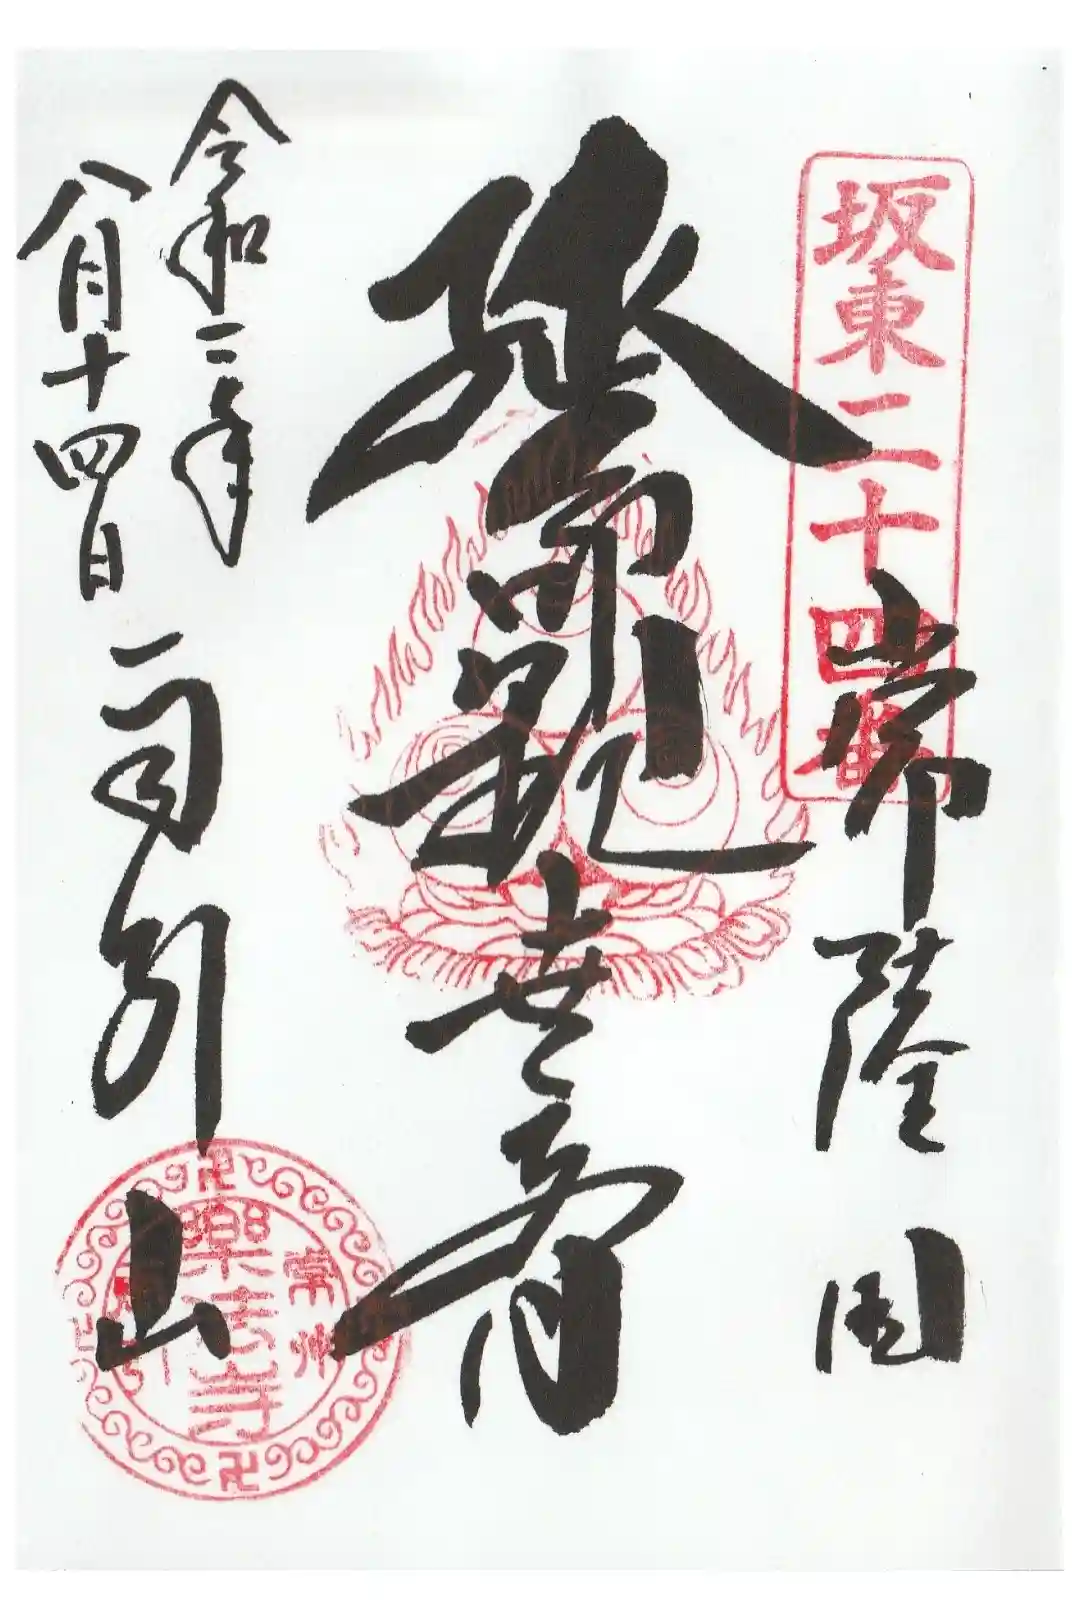 坂東二十四番
常陸国
延命観世音
令和二年
八月十四日
雨引山
常州
樂法寺